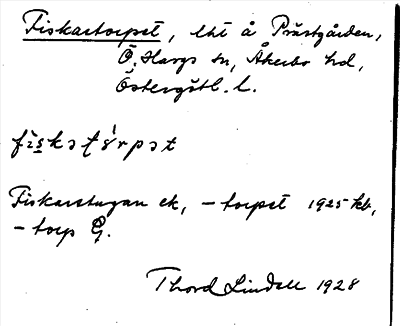 Fiskartorpet, lht å Prästgården,
Ö. Hargs sn, Åkerbo hd,
Östergötl. l.
fiskaretugan ek, -torpet 1925 kb,
-torp G.
Thord Lindell 1928